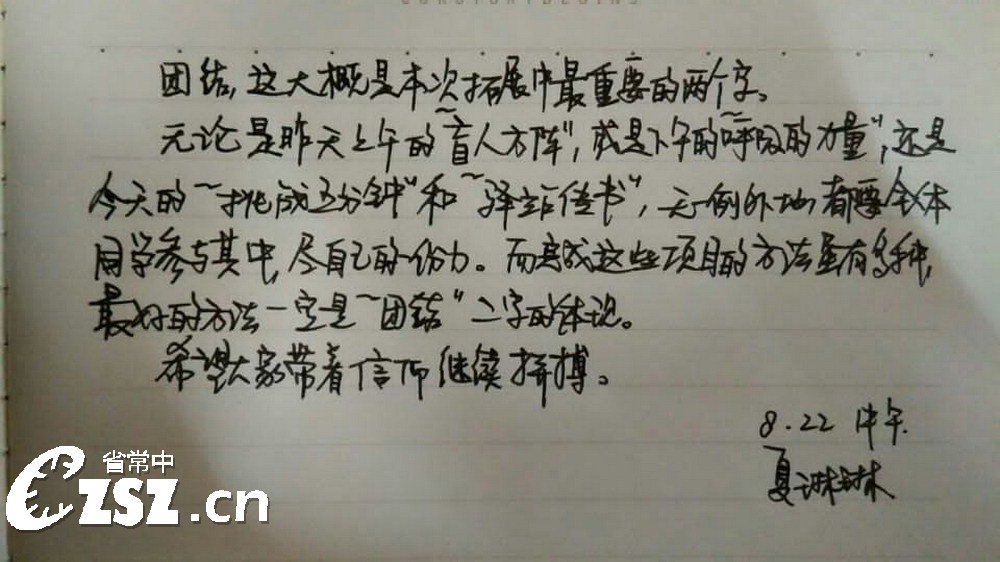 团结,这大概是本次拓展中最重要的两个字。
无论是昨天上午的“盲人方阵”,或是下午的“呼吸的力量”,还是
今天的“挑战五分钟”和“驿站传书”,无一例外地都要全体
同学参与其中,尽自己的一份力。而完成这些项目的方法虽有多种,
最好的方法一定是“团结”二字的体现。
希望大家带着信仰继续拼搏。
8.22 中午.
夏琳琳
省常中
CZSZ.cn